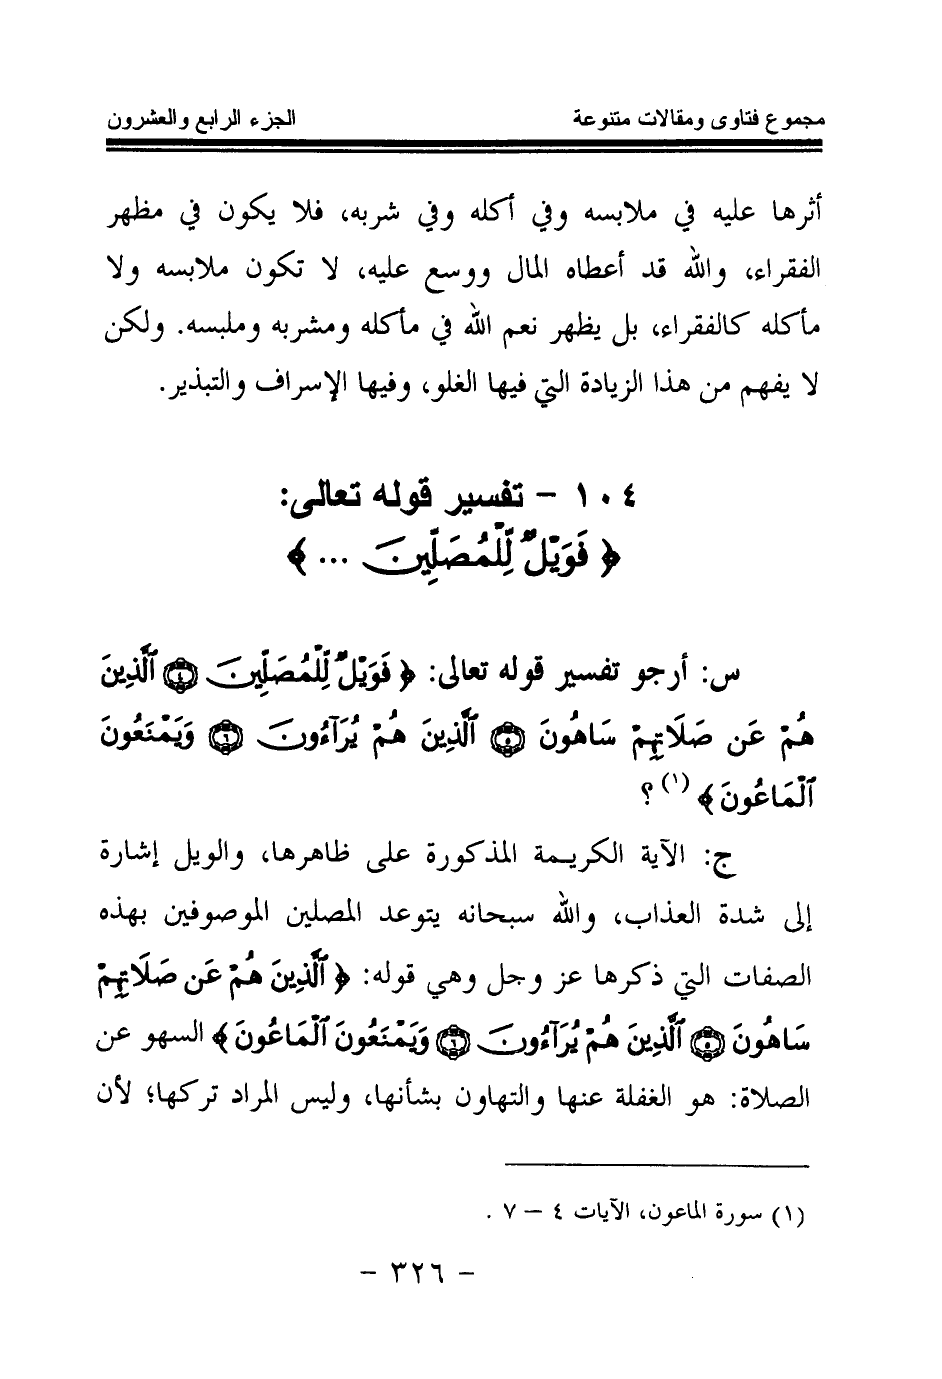 مجموع فتاوى ومقالات متنوعة الجزء الرابع والعشرون
أثرها عليه في ملابسه وفي أكله وفي شربه، فلا يكون في مظهر
الفقراء، والله قد أعطاه المال ووسع عليه، لا تكون ملابسه ولا
مأكله كالفقراء، بل يظهر نعم الله في مأكله ومشربه وملبسه. ولكن
لا يفهم من هذا الزيادة التي فيها الغلو، وفيها الإسراف والتبذير.
١٠٤ - تفسير قوله تعالى:
﴿ فَوَيْلٌ لِّلْمُصَلِّينَ ... ﴾
س: أرجو تفسير قوله تعالى: ﴿ فَوَيْلٌ لِّلْمُصَلِّينَ ۝٤ ٱلَّذِينَ
هُمْ عَن صَلَاتِهِمْ سَاهُونَ ۝٥ ٱلَّذِينَ هُمْ يُرَآءُونَ ۝٦ وَيَمْنَعُونَ
ٱلْمَاعُونَ ﴾ (١) ؟
ج: الآية الكريمة المذكورة على ظاهرها، والويل إشارة
إلى شدة العذاب، والله سبحانه يتوعد المصلين الموصوفين بهذه
الصفات التي ذكرها عز وجل وهي قوله: ﴿ ٱلَّذِينَ هُمْ عَن صَلَاتِهِمْ
سَاهُونَ ۝٥ ٱلَّذِينَ هُمْ يُرَآءُونَ ۝٦ وَيَمْنَعُونَ ٱلْمَاعُونَ ﴾ السهو عن
الصلاة: هو الغفلة عنها والتهاون بشأنها، وليس المراد تركها؛ لأن
(١) سورة الماعون، الآيات ٤ – ٧ .
- ٣٢٦ -